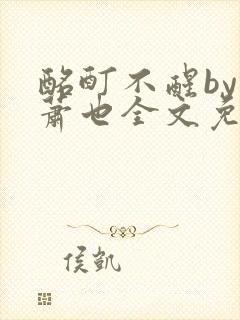 酩酊不醒by
萧也全文免
侯凯